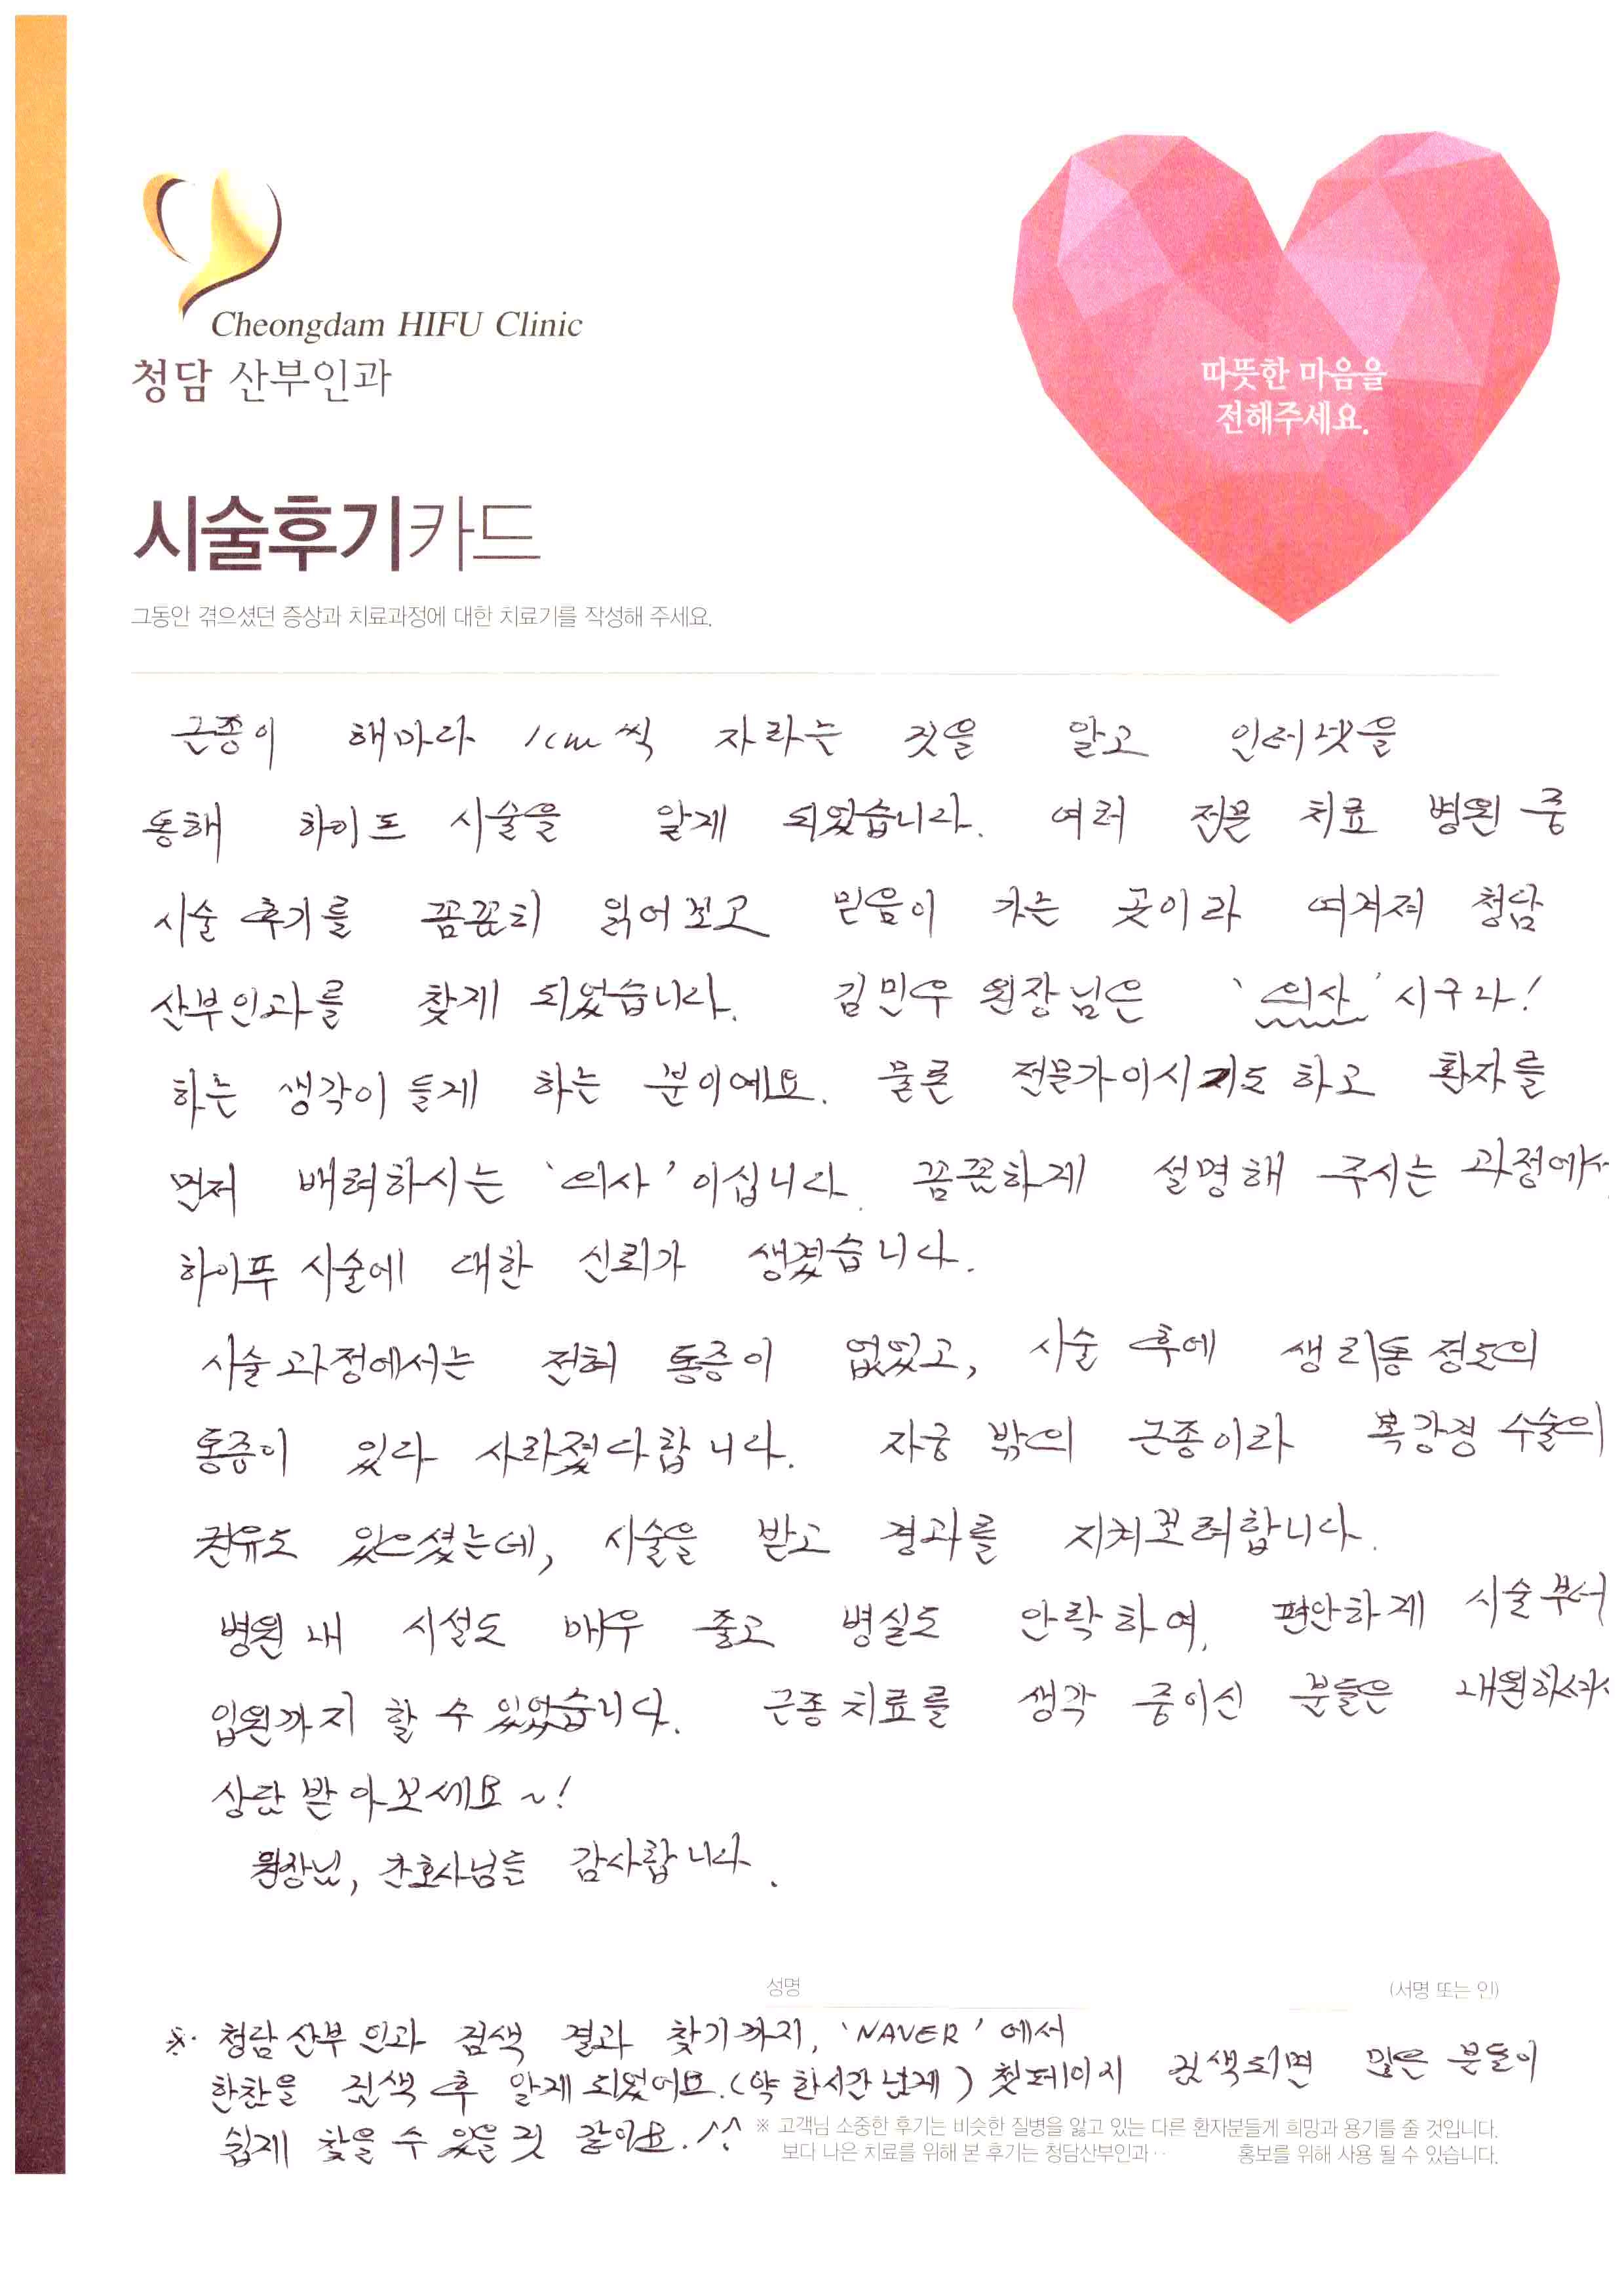 Cheongdam HIFU Clinic
청담 산부인과
따뜻한 마음을
전해주세요.
시술후기카드
그동안 겪으셨던 증상과 치료과정에 대한 치료기를 작성해 주세요.
근종이 해마다 1cm씩 자라는 것을 알고 인터넷을
통해 하이푸 시술을 알게 되었습니다. 여러 전문 치료 병원 중
시술 후기를 꼼꼼히 읽어보고 믿음이 가는 곳이라 여겨져 청담
산부인과를 찾게 되었습니다. 김민우 원장님은 '의사'시구나!
하는 생각이 들게 하는 분이예요. 물론 전문가이시기도 하고 환자를
먼저 배려하시는 '의사'이십니다. 꼼꼼하게 설명해 주시는 과정에서
하이푸 시술에 대한 신뢰가 생겼습니다.
시술과정에서는 전혀 통증이 없었고, 시술 후에 생리통 정도의
통증이 있다 사라졌다합니다. 자궁 밖의 근종이라 복강경 수술의
권유도 있으셨는데, 시술을 받고 경과를 지켜보려합니다.
병원 내 시설도 매우 좋고 병실도 안락하여, 편안하게 시술부터
입원까지 할 수 있었습니다. 근종 치료를 생각 중이신 분들은 내원하셔서
상담 받아보세요~!
원장님, 간호사님들 감사합니다.
성명 (서명 또는 인)
※. 청담산부인과 검색 결과 찾기까지, 'NAVER'에서
한참을 검색 후 알게되었어요.(약 한시간 넘게) 첫페이지 검색되면 많은 분들이
쉽게 찾을 수 있을 것 같아요.^^
※ 고객님 소중한 후기는 비슷한 질병을 앓고 있는 다른 환자분들게 희망과 용기를 줄 것입니다.
보다 나은 치료를 위해 본 후기는 청담산부인과 홍보를 위해 사용 될 수 있습니다.